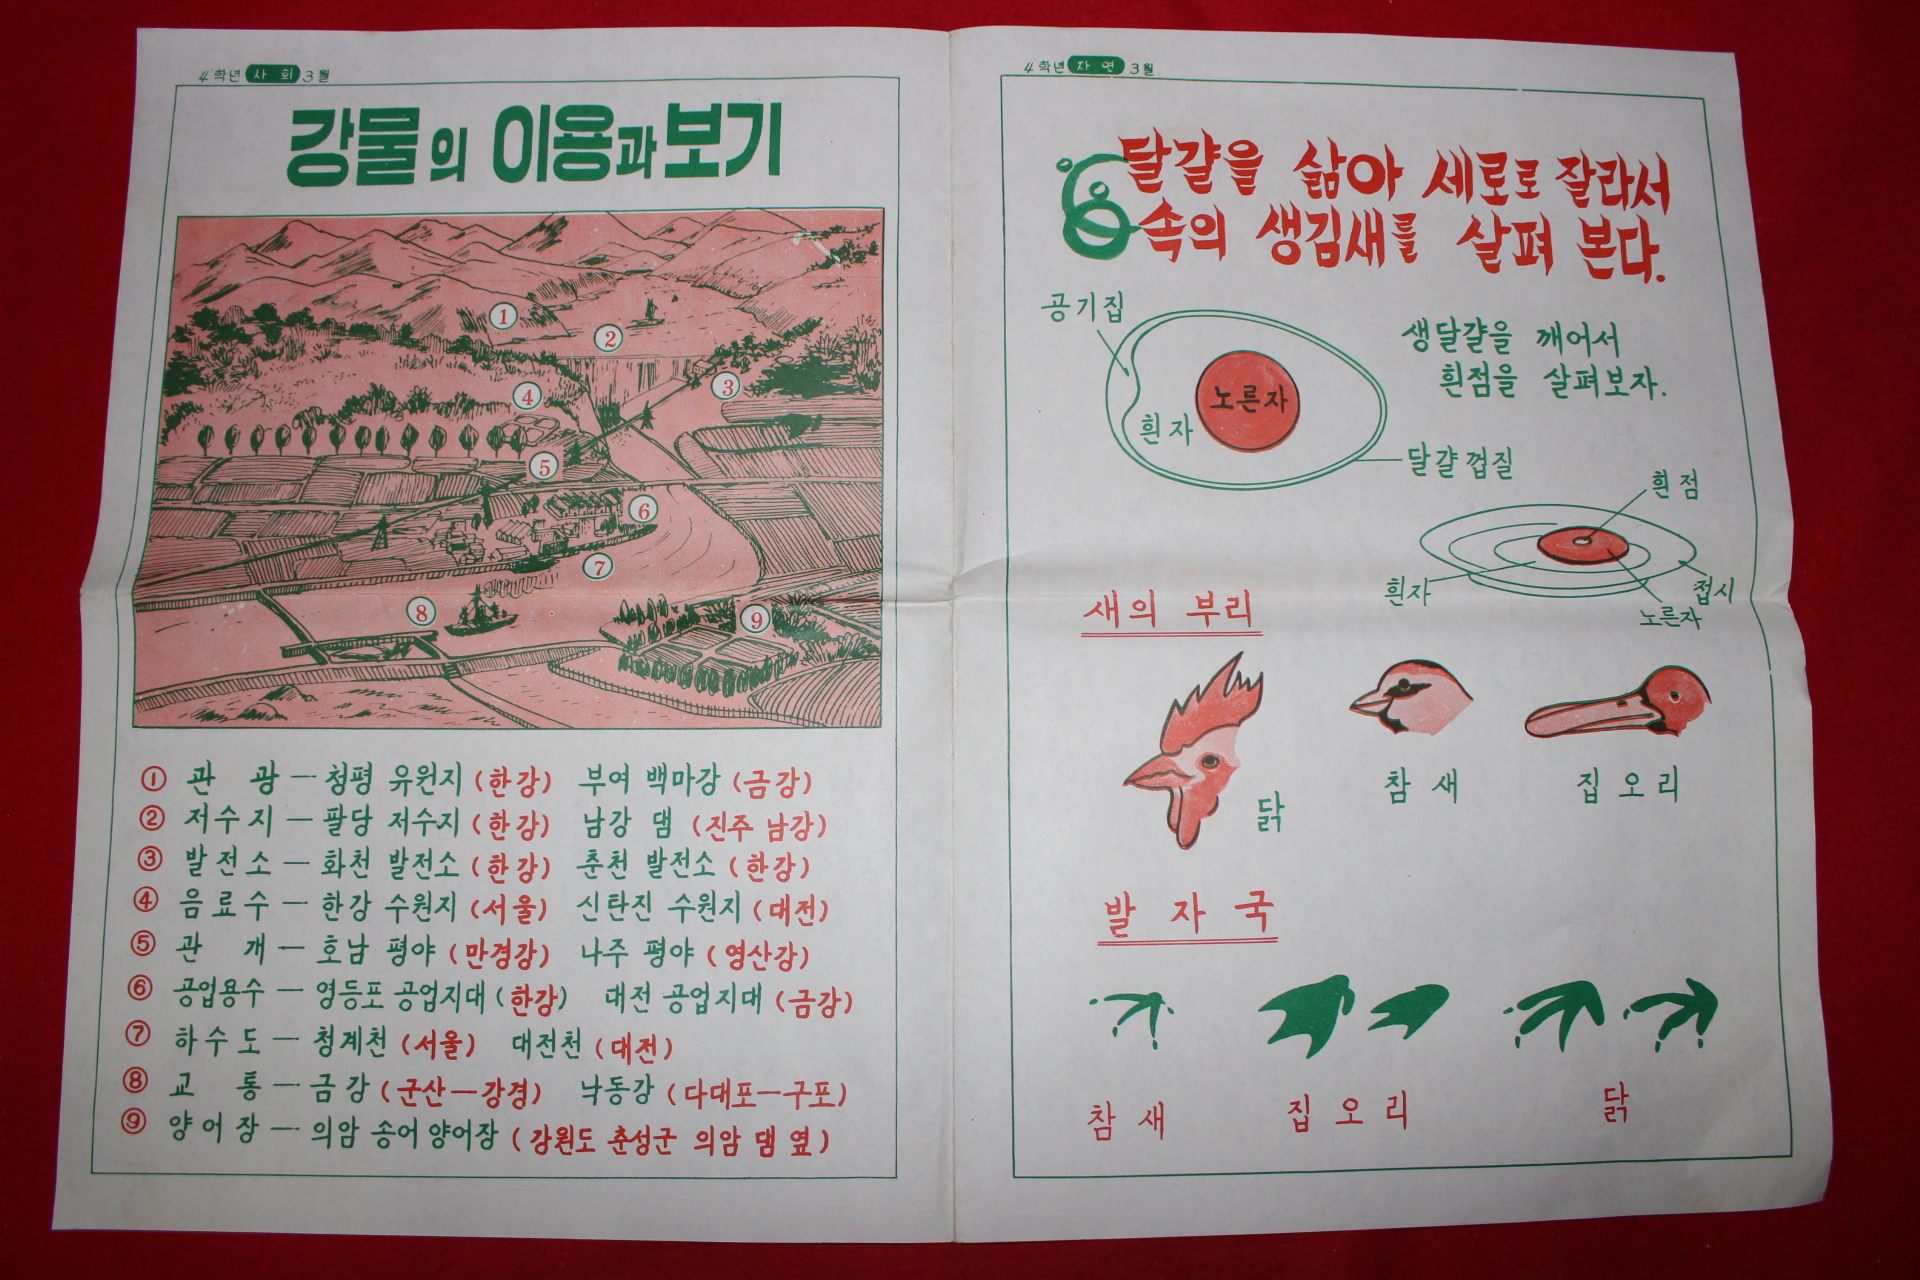 4학년 사회 3월
강물의 이용과 보기
1
2
3
4
5
6
7
8
9
① 관 광 — 청평 유원지 (한강) 부여 백마강 (금강)
② 저수지 — 팔당 저수지 (한강) 남강 댐 (진주 남강)
③ 발전소 — 화천 발전소 (한강) 춘천 발전소 (한강)
④ 음료수 — 한강 수원지 (서울) 신탄진 수원지 (대전)
⑤ 관 개 — 호남 평야 (만경강) 나주 평야 (영산강)
⑥ 공업용수 — 영등포 공업지대 (한강) 대전 공업지대 (금강)
⑦ 하수도 — 청계천 (서울) 대전천 (대전)
⑧ 교 통 — 금강 (군산—강경) 낙동강 (다대포—구포)
⑨ 양어장 — 의암 송어 양어장 (강원도 춘성군 의암 댐 옆)
4학년 자연 3월
6 달걀을 삶아 세로로 잘라서
속의 생김새를 살펴 본다.
공기집
노른자
흰자
달걀 껍질
생달걀을 깨어서
흰점을 살펴보자.
흰점
흰자
접시
노른자
새의 부리
닭
참새
집오리
발자국
참새
집오리
닭